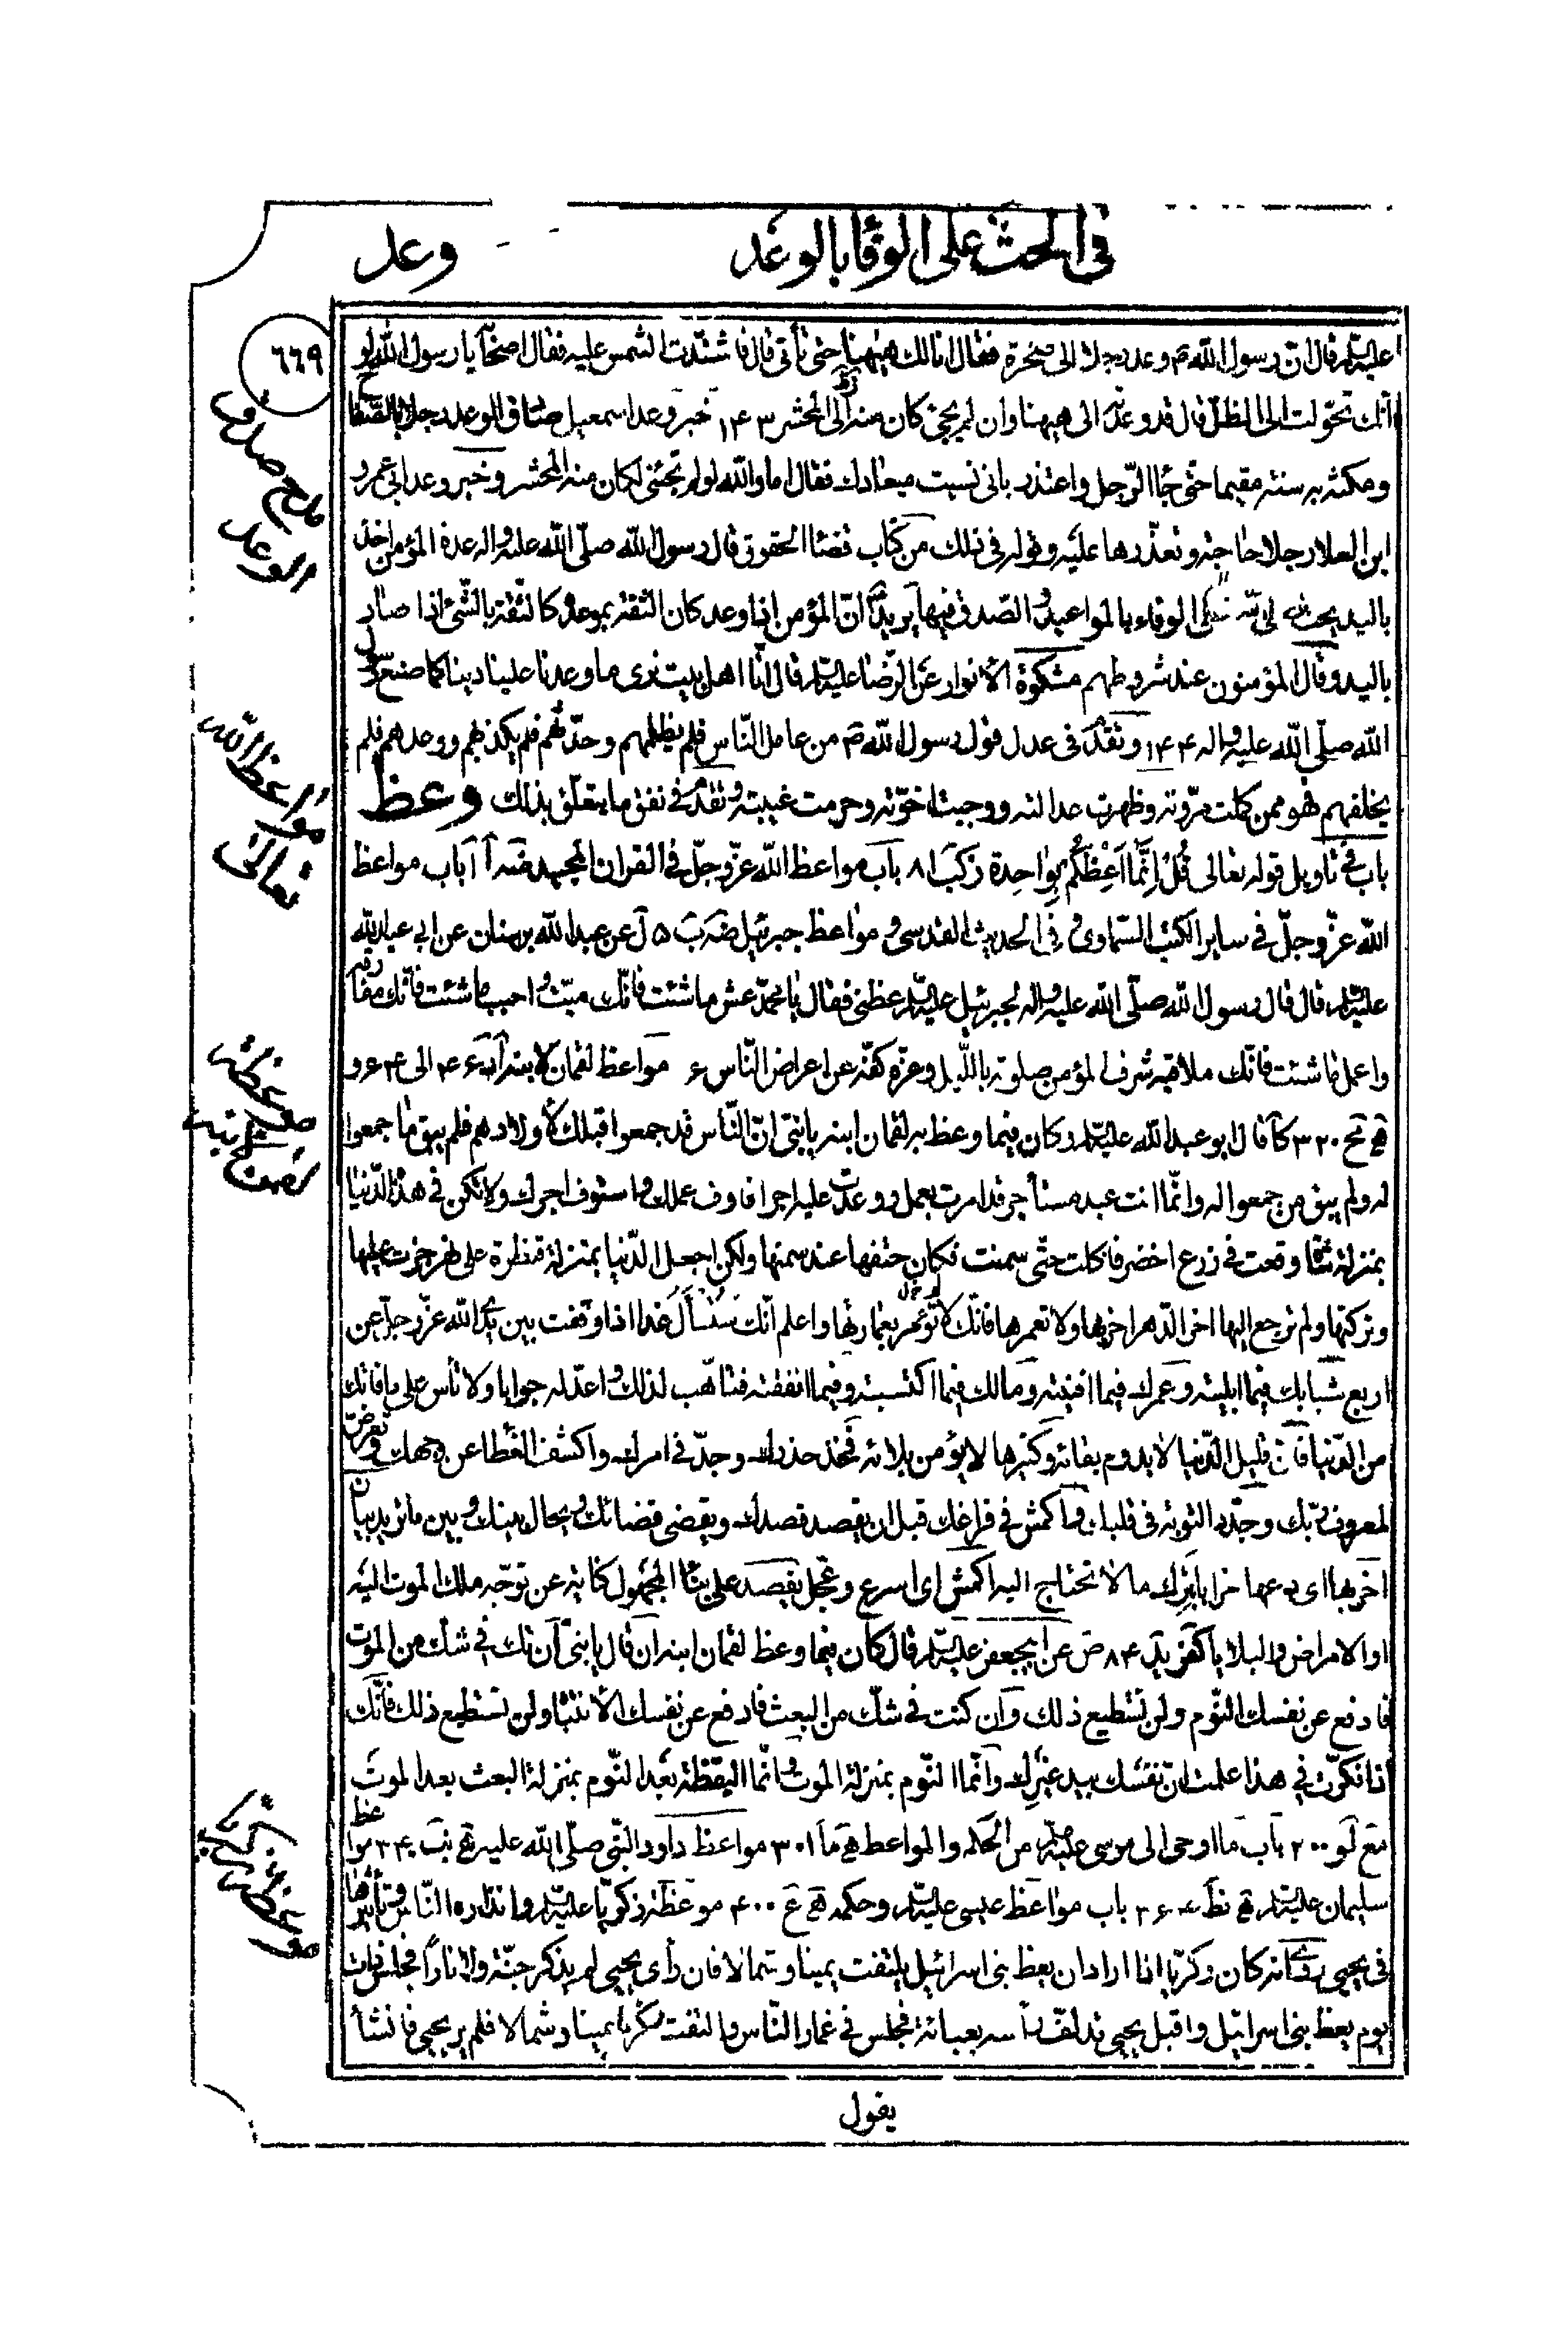 في الحث على الوفا بالوعد
وعد
٦٦٩
عليه السلام قال ان رسول الله ص وعد رجلا الى صخرة فقال انا لك هيهنا حتى تأتي قال فاشتدت الشمس عليه فقال اصحابه يا رسول الله لو
انك تحولت الى الظل قال قد وعدته الى هيهنا وان لم يجئ كان منه الى المحشر ١٤٣ خبر وعد اسمعيل صادق الوعد رجلا بالصفاح
ومكثه به سنة مقيما حتى جاء الرجل واعتذر باني نسيت ميعادك فقال اما والله لو لم تجئني لكان منه المحشر وخبر وعد ابي عمرو
ابن العلا رجلا حاجة وتعذرها عليه وقوله في ذلك من كتاب قضاء الحقوق قال رسول الله صلى الله عليه واله عدة المؤمن اخذ
باليد يحث على الوفاء بالمواعيد والصدق فيها يريد ان المؤمن اذا وعد كان الثقة بموعده كالثقة بالشئ اذا صار
باليد وقال المؤمنون عند شروطهم مشكوة الأنوار عن الرضا عليه السلام قال انا اهل بيت نرى ما وعدنا علينا دينا كما صنع رسول
الله صلى الله عليه واله ١٤٤ وتقدم في عدل قول رسول الله ص من عامل الناس فلم يظلمهم وحدثهم فلم يكذبهم ووعدهم فلم
يخلفهم فهو ممن كملت مروته وظهرت عدالته ووجبت اخوته وحرمت غيبته وتقدم في نفق ما يتعلق بذلك وعظ
باب في تاويل قوله تعالى قُلْ إِنَّمَا أَعِظُكُم بِوَاحِدة زكب ٨١ باب مواعظ الله عز وجل في القران المجيد ضه آ آ باب مواعظ
الله عز وجل في ساير الكتب السماوي وفي الحديث القدسي و مواعظ جبرئيل ضه ب ٥ ل عن عبد الله بن سنان عن ابي عبد الله
عليه السلام قال قال رسول الله صلى الله عليه واله لجبرئيل عليه السلام عظني فقال يا محمد عش ما شئت فانك ميت واحبب ما شئت فانك مفارقه
واعمل ما شئت فانك ملاقيه شرف المؤمن صلوته بالليل وعزه كفه عن اعراض الناس ٦ مواعظ لقمان لابنه
٣٢٠ كا قال ابو عبد الله عليه السلام كان فيما وعظ به لقمان ابنه يا بني ان الناس قد جمعوا قبلك لأولادهم فلم يبق ما جمعوا
له ولم يبق من جمعوا له وانما انت عبد مستأجر قد امرت بعمل ووعدت عليه اجرا فاوف عملك واستوف اجرك ولا تكن في هذه الدنيا
بمنزلة شاة وقعت في زرع اخضر فاكلت حتى سمنت فكان حتفها عند سمنها ولكن اجعل الدنيا بمنزلة قنطرة على نهر جزت عليها
وتركتها ولم ترجع اليها اخر الدهر اخربها ولا تعمرها فانك لم تؤمر بعمارتها واعلم انك ستسأل غدا اذا وقفت بين يدي الله عز وجل عن
اربع شبابك فيما ابليته وعمرك فيما افنيته ومالك فيما اكتسبته وفيما انفقته فتاهب لذلك واعد له جوابا ولا تأس على ما فاتك
من الدنيا فان قليل الدنيا لا يدوم بقائه وكثيرها لا يؤمن بلائه فخذ حذرك وجد في امرك واكشف الغطا عن وجهك وتعرض
لمعروف ربك وجدد التوبة في قلبك واكمش في فراغك قبل ان يقصد قصدك ويقضى قضائك ويحال بينك وبين ما تريد بيان
اخربها اى دعها خرابا بترك ما لا تحتاج اليه اكمش اى اسرع وعجل يقصد على بناء المجهول كناية عن توجه ملك الموت اليه
او الامراض والبلايا ٨٤ ص عن ابي جعفر عليه السلام قال كان فيما وعظ لقمان ابنه ان قال يا بني ان تك في شك من الموت
فادفع عن نفسك النوم ولن تستطيع ذلك وان كنت في شك من البعث فادفع عن نفسك الانتباه ولن تستطيع ذلك فانك
اذا فكرت في هذا علمت ان نفسك بيد غيرك وانما النوم بمنزلة الموت وانما اليقظة بعد النوم بمنزلة البعث بعد الموت
مع لو ٢٠٠ باب ما اوحى الى موسى عليه السلام من الحكم والمواعظ ٣٠١ مواعظ داود النبي صلى الله عليه ٣٤٠ مواعظ
سليمان عليه السلام ٣٦٤ باب مواعظ عيسى عليه السلام وحكمه ٤٠٠ موعظة زكريا عليه السلام وانذاره الناس وتأثيرها
في يحيى روي انه كان زكريا اذا اراد ان يعظ بنى اسرائيل يلتفت يمينا وشمالا فان رأى يحيى لم يذكر جنة ولا نارا فجلس ذات
يوم يعظ بنى اسرائيل واقبل يحيى قد لف رأسه بعبائة فجلس في غمار الناس والتفت زكريا يمينا وشمالا فلم ير يحيى فانشأ
يقول
مدح صادق الوعد
مواعظ الله تعالى
موعظة لقمان لابنه
موعظة زكريا